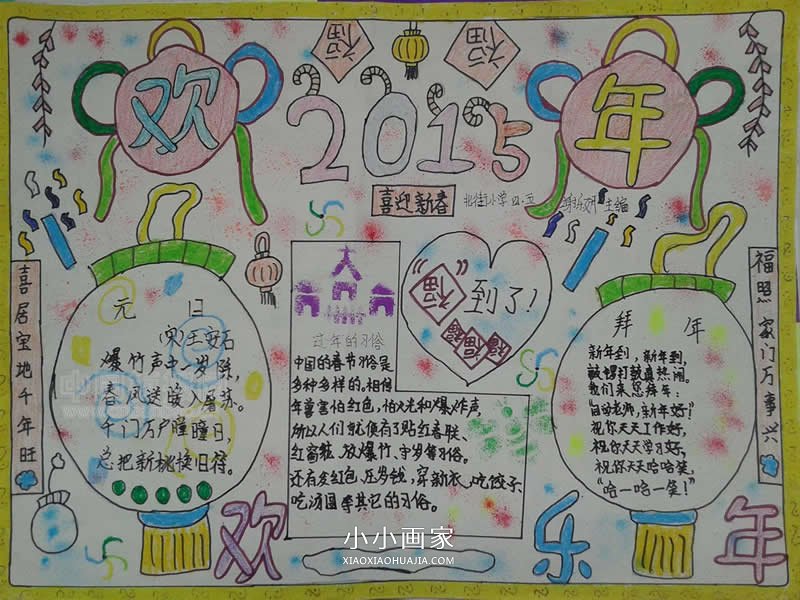 欢
福
福
年
2015
喜迎新春
北街小学四.五
主编
喜居宝地千年旺
元 日
(宋)王安石
爆竹声中一岁除,
春风送暖入屠苏。
千门万户瞳瞳日,
总把新桃换旧符。
过年的习俗
中国的春节习俗是
多种多样的,相传
年兽害怕红色,怕火光和爆炸声,
所以人们就便有了贴红春联、
红窗花、放爆竹、守岁等习俗。
还有发红包、压岁钱,穿新衣、吃饺子、
吃汤圆等其它的习俗。
“福”到了!
福福福
拜 年
新年到,新年到,
敲锣打鼓真热闹。
我们来您拜年:
“自老师,新年好!”
祝你天天工作好,
祝你天天学习好,
祝你天天哈哈笑,
“哈—哈哈—笑!”
福照家门万事兴
欢
乐
年
小小画家
XIAOXIAOHUAJIA.COM